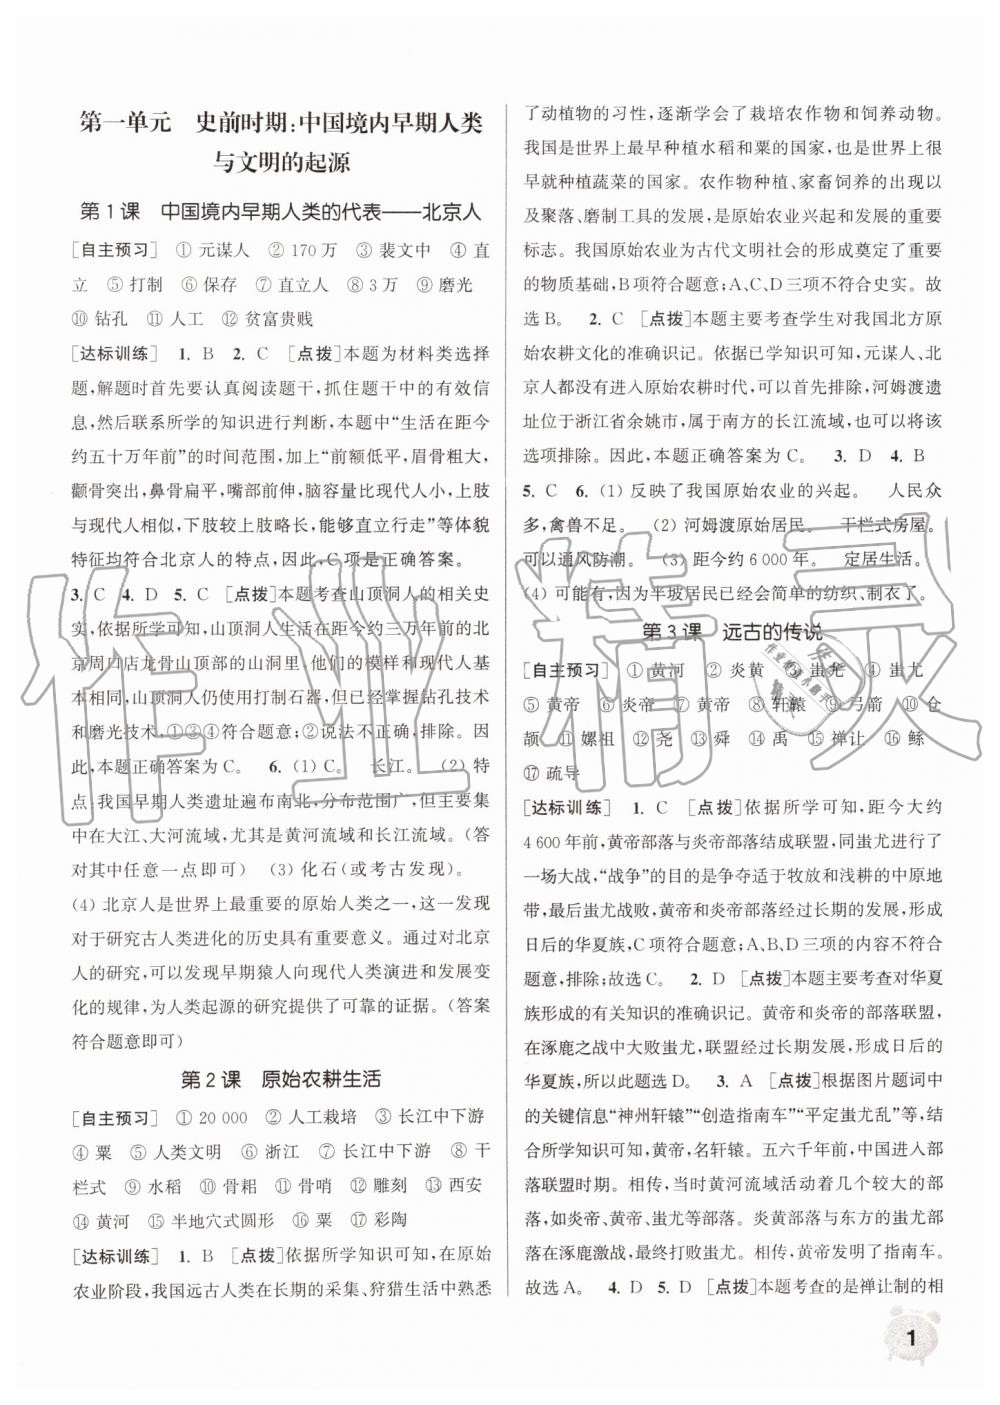 第一单元　史前时期:中国境内早期人类
与文明的起源
第1课　中国境内早期人类的代表——北京人
[自主预习]　①元谋人　②170万　③裴文中　④直
立　⑤打制　⑥保存　⑦直立人　⑧3万　⑨磨光
⑩钻孔　⑪人工　⑫贫富贵贱
[达标训练]　1. B　2. C　[点拨]本题为材料类选择
题,解题时首先要认真阅读题干,抓住题干中的有效信
息,然后联系所学的知识进行判断,本题中“生活在距今
约五十万年前”的时间范围,加上“前额低平,眉骨粗大,
颧骨突出,鼻骨扁平,嘴部前伸,脑容量比现代人小,上肢
与现代人相似,下肢较上肢略长,能够直立行走”等体貌
特征均符合北京人的特点,因此,C项是正确答案。
3. C　4. D　5. C　[点拨]本题考查山顶洞人的相关史
实,依据所学可知,山顶洞人生活在距今约三万年前的
北京周口店龙骨山顶部的山洞里,他们的模样和现代人
基本相同,山顶洞人仍使用打制石器,但已经掌握钻孔技术
和磨光技术,①③④符合题意;②说法不正确,排除。因
此,本题正确答案为C。　6. (1) C。　长江。　(2) 特
点:我国早期人类遗址遍布南北,分布范围广,但主要集
中在大江、大河流域,尤其是黄河流域和长江流域。(答
对其中任意一点即可)　(3) 化石(或考古发现)。
(4) 北京人是世界上最重要的原始人类之一,这一发现
对于研究古人类进化的历史具有重要意义。通过对北京
人的研究,可以发现早期猿人向现代人类演进和发展变
化的规律,为人类起源的研究提供了可靠的证据。(答案
符合题意即可)
第2课　原始农耕生活
[自主预习]　①20 000　②人工栽培　③长江中下游
④粟　⑤人类文明　⑥浙江　⑦长江中下游　⑧干
栏式　⑨水稻　⑩骨耜　⑪骨哨　⑫雕刻　⑬西安
⑭黄河　⑮半地穴式圆形　⑯粟　⑰彩陶
[达标训练]　1. B　[点拨]依据所学知识可知,在原始
农业阶段,我国远古人类在长期的采集、狩猎生活中熟悉
了动植物的习性,逐渐学会了栽培农作物和饲养动物。
我国是世界上最早种植水稻和粟的国家,也是世界上很
早就种植蔬菜的国家。农作物种植、家畜饲养的出现以
及聚落、磨制工具的发展,是原始农业兴起和发展的重要
标志。我国原始农业为古代文明社会的形成奠定了重要
的物质基础,B项符合题意;A、C、D三项不符合史实。故
选B。　2. C　[点拨]本题主要考查学生对我国北方原
始农耕文化的准确识记。依据已学知识可知,元谋人、北
京人都没有进入原始农耕时代,可以首先排除,河姆渡遗
址位于浙江省余姚市,属于南方的长江流域,也可以将该
选项排除。因此,本题正确答案为C。　3. D　4. B
5. C　6. (1) 反映了我国原始农业的兴起。　人民众
多,禽兽不足。　(2) 河姆渡原始居民。　干栏式房屋。
可以通风防潮。　(3) 距今约6 000年。　定居生活。
(4) 可能有,因为半坡居民已经会简单的纺织、制衣了。
第3课　远古的传说
[自主预习]　①黄河　②炎黄　③蚩尤　④蚩尤
⑤黄帝　⑥炎帝　⑦黄帝　⑧轩辕　⑨弓箭　⑩仓
颉　⑪嫘祖　⑫尧　⑬舜　⑭禹　⑮禅让　⑯鲧
⑰疏导
[达标训练]　1. C　[点拨]依据所学可知,距今大约
4 600年前,黄帝部落与炎帝部落结成联盟,同蚩尤进行了
一场大战,“战争”的目的是争夺适于牧放和浅耕的中原地
带,最后蚩尤战败,黄帝和炎帝部落经过长期的发展,形成
日后的华夏族,C项符合题意;A、B、D三项的内容不符合
题意,排除;故选C。　2. D　[点拨]本题主要考查对华夏
族形成的有关知识的准确识记。黄帝和炎帝的部落联盟,
在涿鹿之战中大败蚩尤,联盟经过长期发展,形成日后的
华夏族,所以此题选D。　3. A　[点拨]根据图片题词中
的关键信息“神州轩辕”“创造指南车”“平定蚩尤乱”等,结
合所学知识可知,黄帝,名轩辕。五六千年前,中国进入部
落联盟时期。当时黄河流域活动着几个较大的部
落,如炎帝、黄帝、蚩尤等部落。炎黄部落与东方的蚩尤部
落在涿鹿激战,最终打败蚩尤。相传,黄帝发明了指南车。
故选A。　4. D　5. D　[点拨]本题考查的是禅让制的相
1
作业精灵